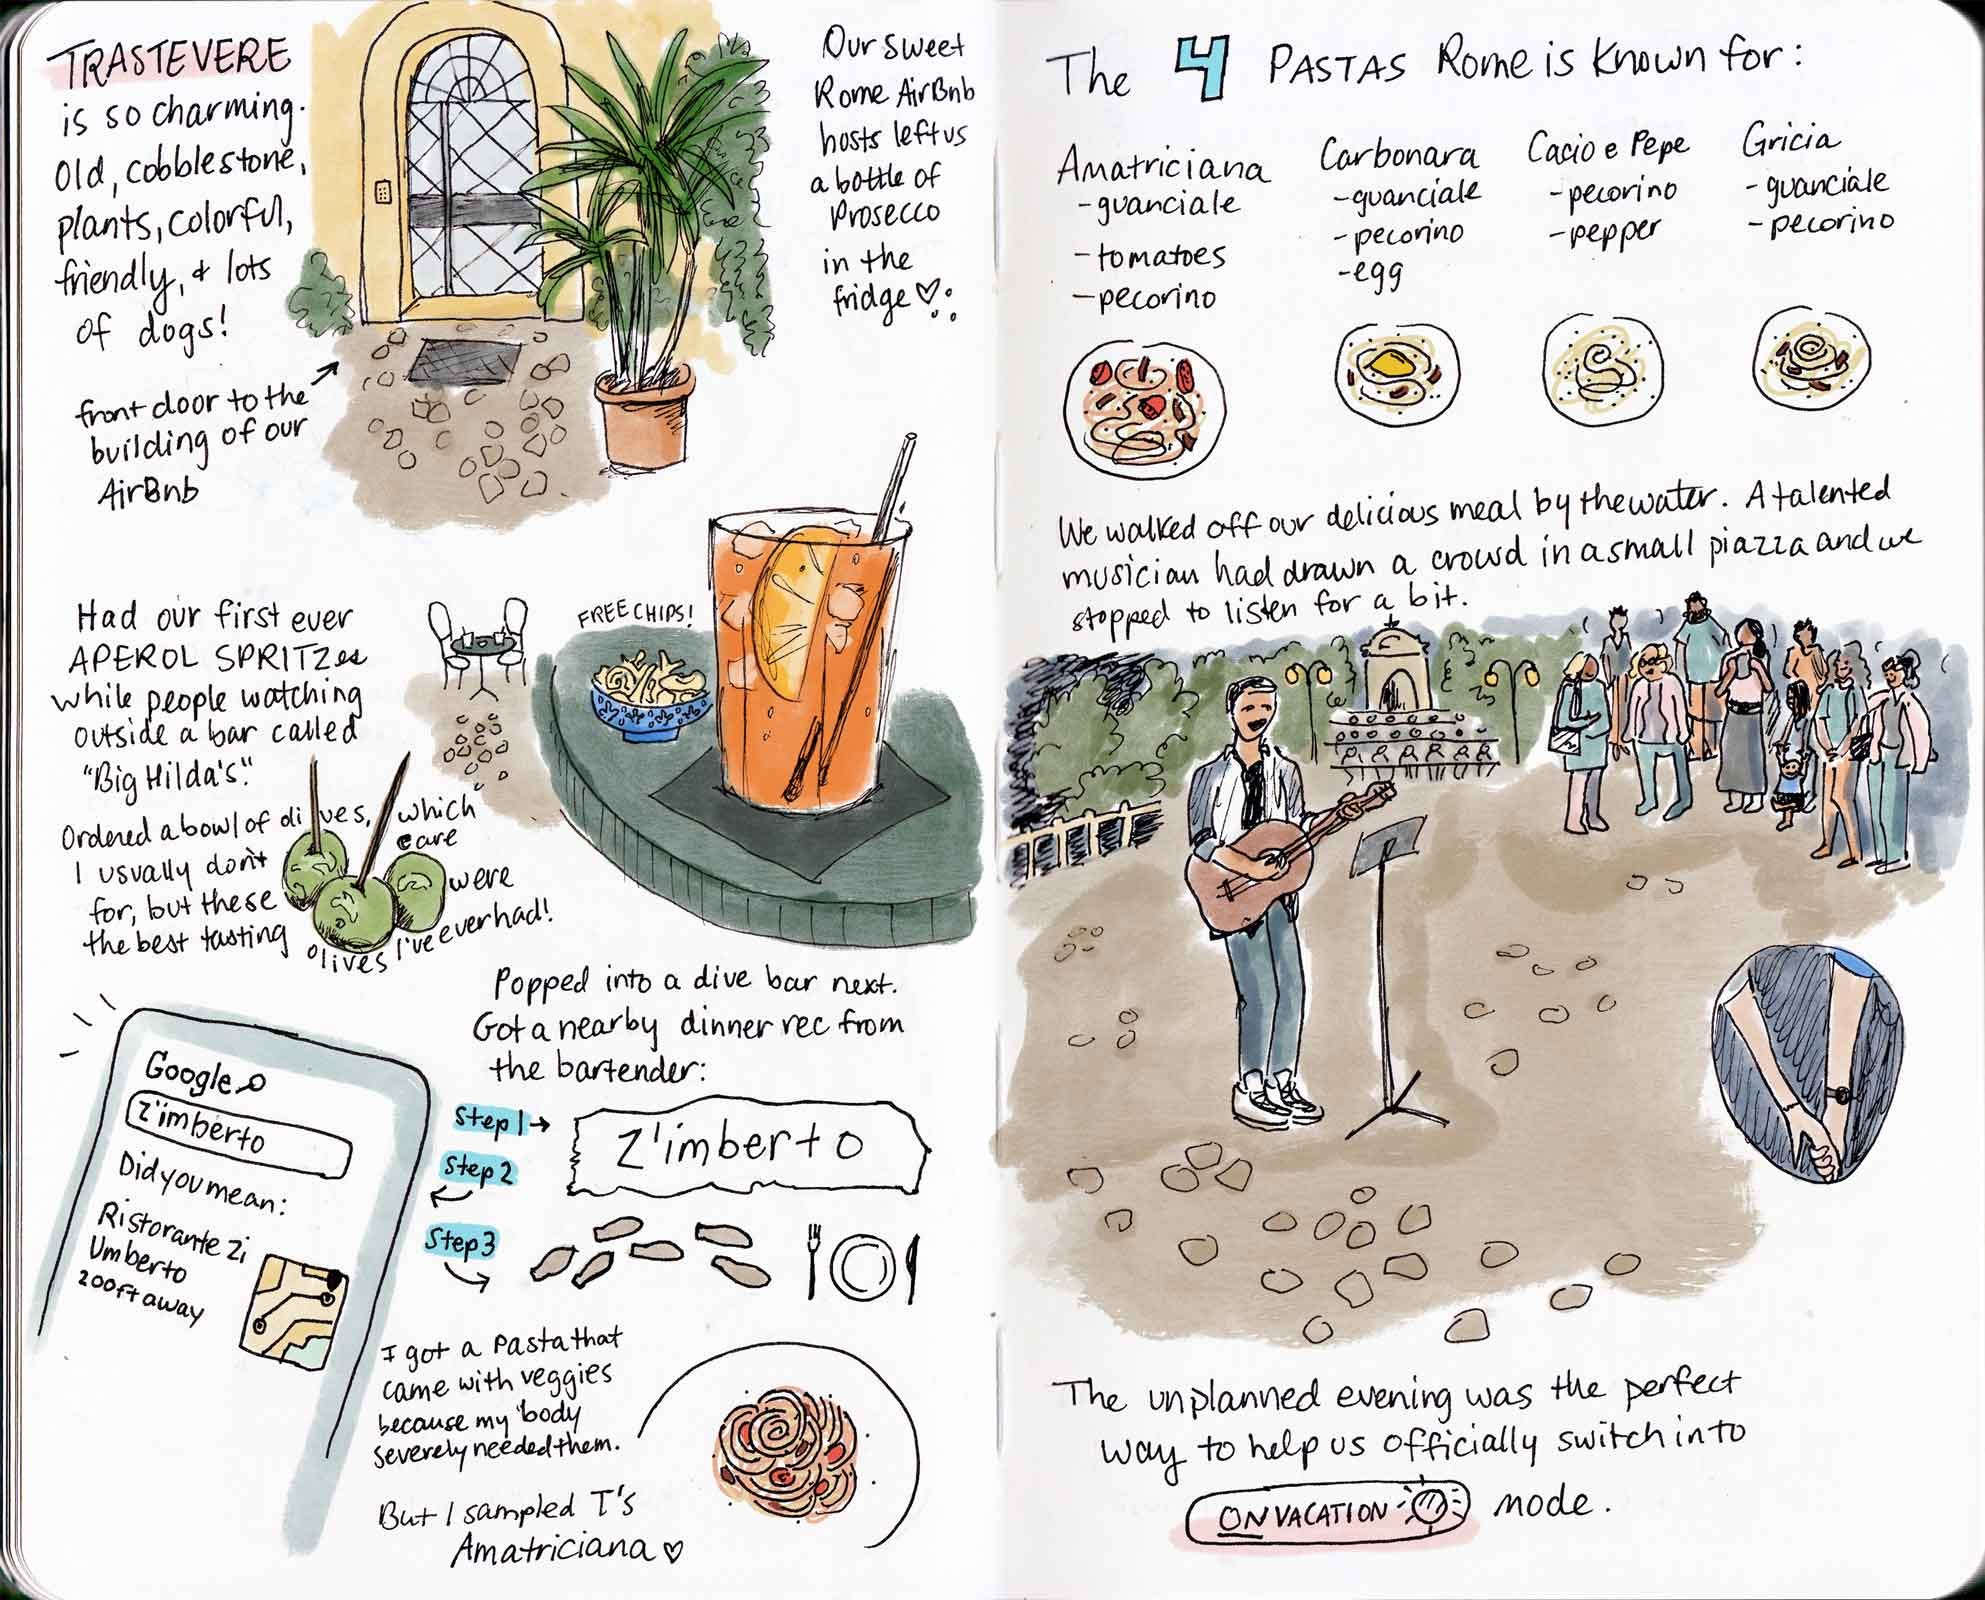 TRASTEVERE
is so charming.
Old, cobblestone,
plants, colorful,
friendly, & lots
of dogs!
front door to the
building of our
AirBnb
Our sweet
Rome AirBnb
hosts left us
a bottle of
Prosecco
in the
fridge ♡
Had our first ever
APEROL SPRITZes
while people watching
outside a bar called
"Big Hilda's."
FREE CHIPS!
Ordered a bowl of olives, which
I usually don't care
for, but these were
the best tasting olives I've ever had!
Popped into a dive bar next.
Got a nearby dinner rec from
the bartender:
Step 1 →
Z'imberto
Step 2
Step 3
Google
Z'imberto
Did you mean:
Ristorante Zi
Umberto
200ft away
I got a pasta that
came with veggies
because my body
severely needed them.
But I sampled T's
Amatriciana ♡
The 4 PASTAS Rome is known for:
Amatriciana
- guanciale
- tomatoes
- pecorino
Carbonara
- guanciale
- pecorino
- egg
Cacio e Pepe
- pecorino
- pepper
Gricia
- guanciale
- pecorino
We walked off our delicious meal by the water. A talented
musician had drawn a crowd in a small piazza and we
stopped to listen for a bit.
The unplanned evening was the perfect
way to help us officially switch into
ON VACATION mode.